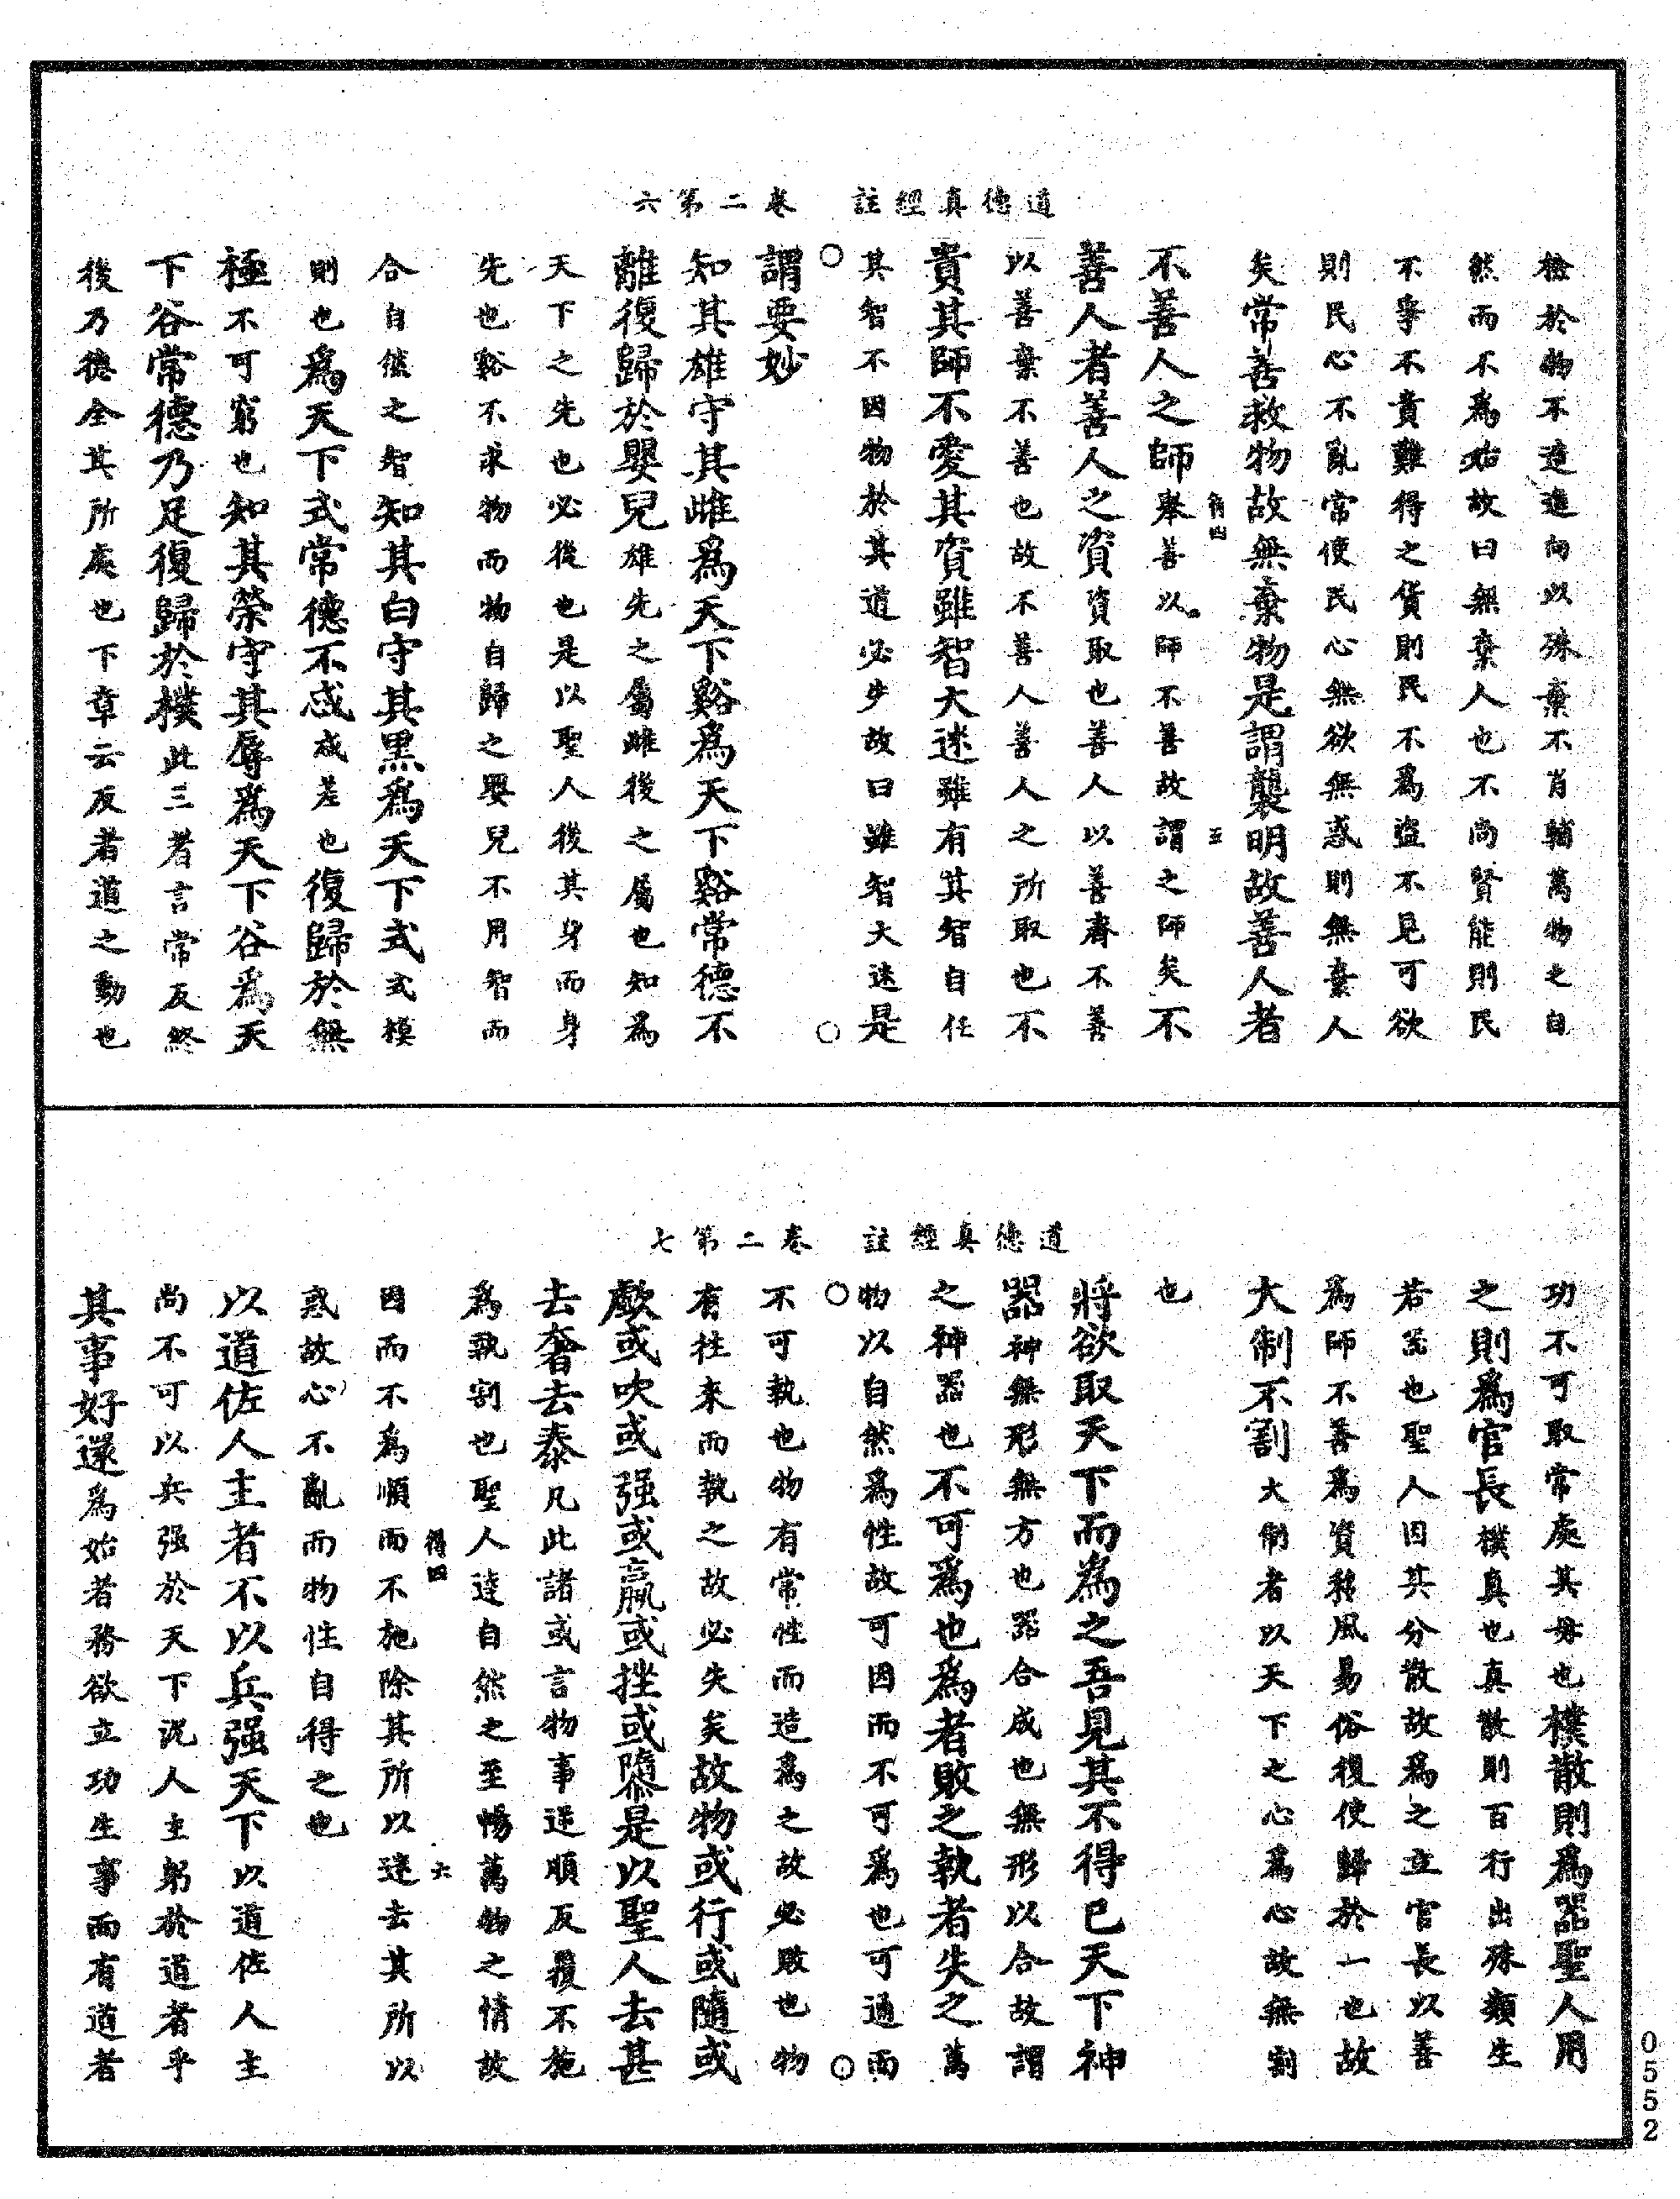 道德真經註　卷二第六
檢於物不造進向以殊棄不肖輔萬物之自
然而不為始故曰無棄人也不尚賢能則民
不爭不貴難得之貨則民不為盜不見可欲
則民心不亂常使民心無欲無惑則無棄人
矣常善救物故無棄物是謂襲明故善人者
不善人之師舉善以師不善故謂之師矣不
善人者善人之資資取也善人以善齊不善
以善棄不善也故不善人善人之所取也不
貴其師不愛其資雖智大迷雖有其智自任
其智不因物於其道必失故曰雖智大迷是
謂要妙
知其雄守其雌為天下谿為天下谿常德不
離復歸於嬰兒雄先之屬雌後之屬也知為
天下之先也必後也是以聖人後其身而身
先也谿不求物而物自歸之嬰兒不用智而
合自然之智知其白守其黑為天下式式模
則也為天下式常德不忒忒差也復歸於無
極不可窮也知其榮守其辱為天下谷為天
下谷常德乃足復歸於樸此三者言常反終
後乃德全其所處也下章云反者道之動也
道德真經註　卷二第七
功不可取常處其母也樸散則為器聖人用
之則為官長樸真也真散則百行出殊類生
若器也聖人因其分散故為之立官長以善
為師不善為資移風易俗復使歸於一也故
大制不割大制者以天下之心為心故無割
也
將欲取天下而為之吾見其不得已天下神
器神無形無方也器合成也無形以合故謂
之神器也不可為也為者敗之執者失之萬
物以自然為性故可因而不可為也可通而
不可執也物有常性而造為之故必敗也物
有往來而執之故必失矣故物或行或隨或
歔或吹或强或羸或挫或隳是以聖人去甚
去奢去泰凡此諸或言物事逆順反覆不施
為執割也聖人達自然之至暢萬物之情故
因而不為順而不施除其所以迷去其所以
惑故心不亂而物性自得之也
以道佐人主者不以兵强天下以道佐人主
尚不可以兵强於天下況人主躬於道者乎
其事好還為始者務欲立功生事而有道者
0552